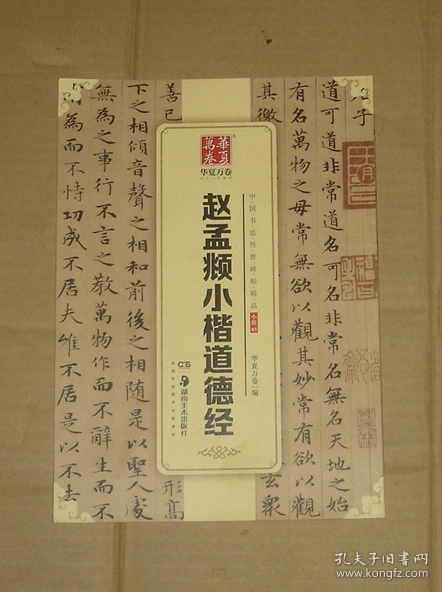 老子
道可道非常道名可名非常名無名天地之始
有名萬物之母常無欲以觀其妙常有欲以觀
其徼
玄衆
華夏萬卷
华夏万卷
中国书法传世碑帖精品
小楷
赵孟頫小楷道德经
华夏万卷·编
湖南美术出版社
善已
形高
下之相傾音聲之相和前後之相隨是以聖人處
無為之事行不言之教萬物作而不辭生而不
為而不恃功成不居夫唯不居是以不去
孔夫子旧书网
www.kongfz.com